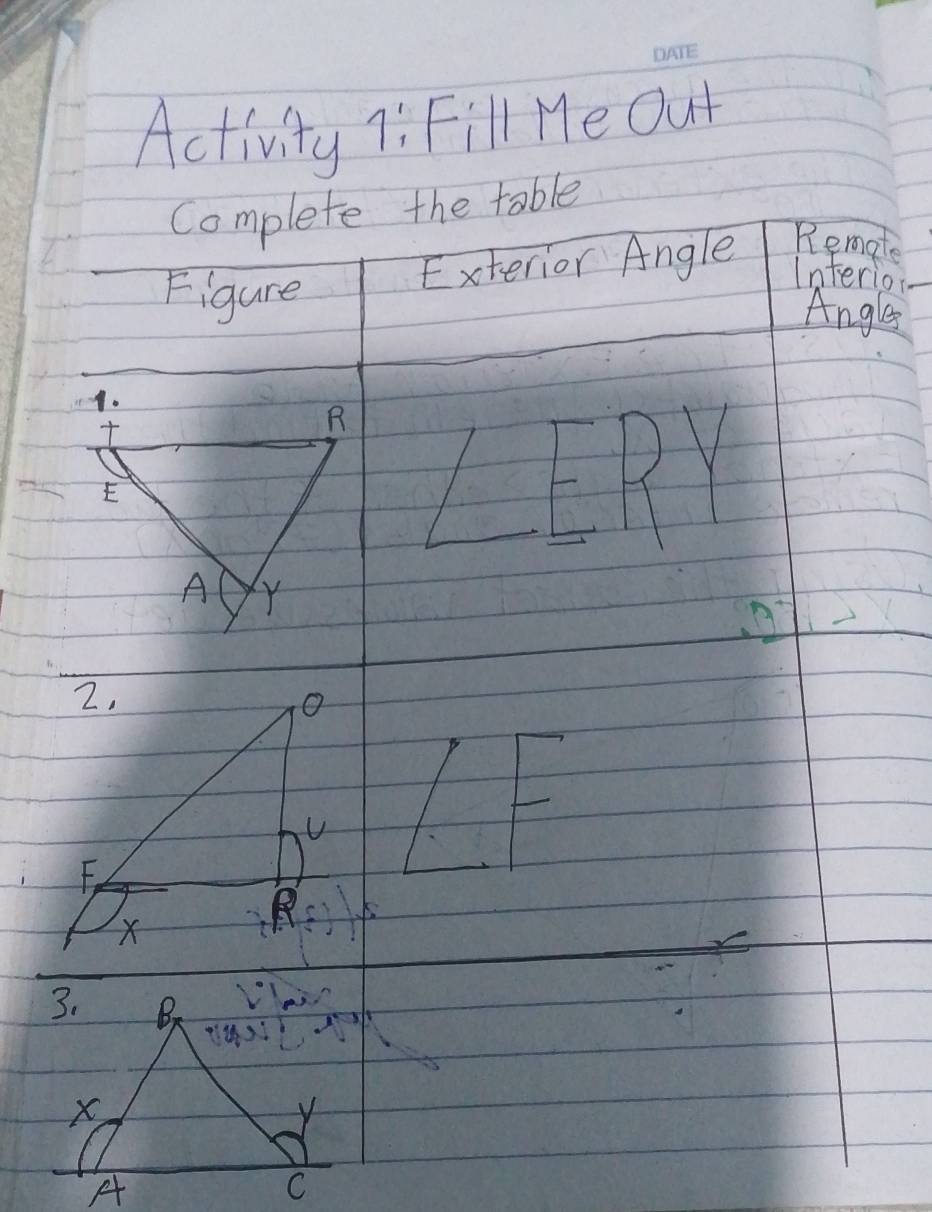 DATE
Activity 1: Fill Me Out
Complete the table
Figure
Exterior Angle
Remote
Interior
Angles
1.
T
R
E
A
Y
∠ERY
2.
O
U
F
X
R
∠F
3.
B
X
Y
A
C